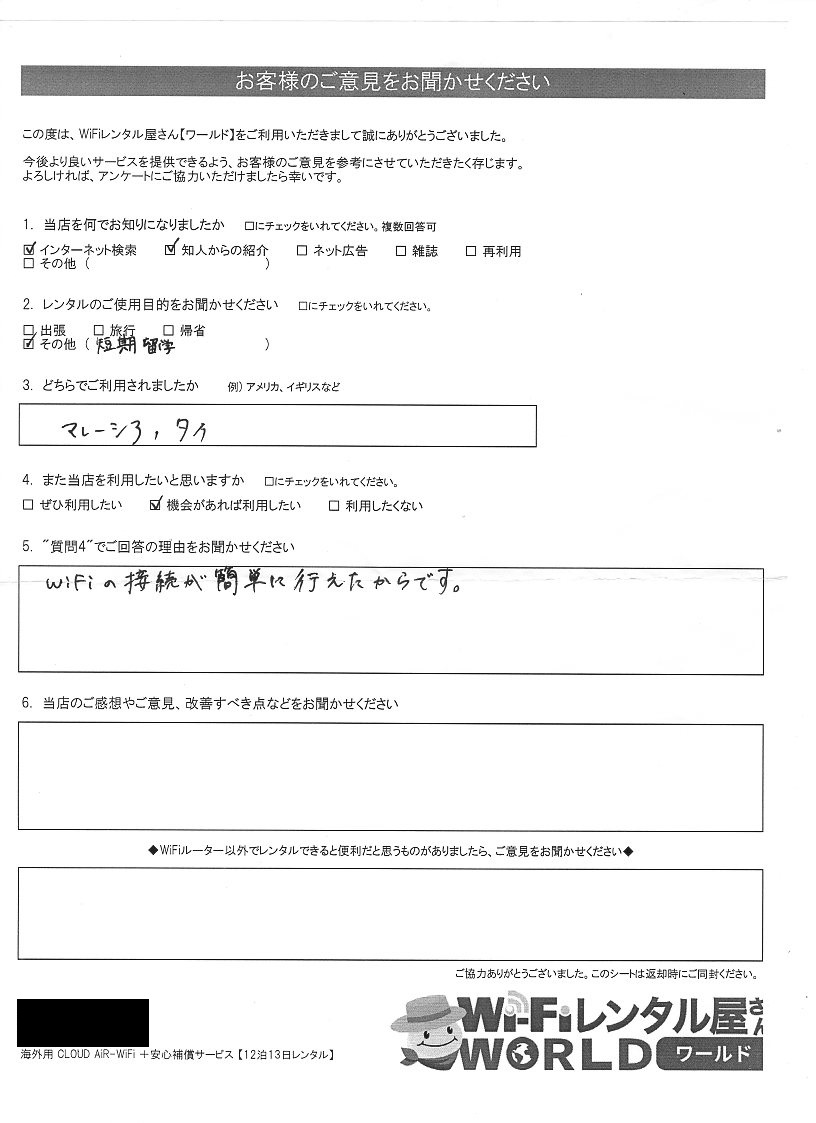 お客様のご意見をお聞かせください
この度は、WiFiレンタル屋さん【ワールド】をご利用いただきまして誠にありがとうございました。
今後より良いサービスを提供できるよう、お客様のご意見を参考にさせていただきたく存じます。
よろしければ、アンケートにご協力いただけましたら幸いです。
1. 当店を何でお知りになりましたか □にチェックをいれてください。複数回答可
☑ インターネット検索 ☑ 知人からの紹介 □ ネット広告 □ 雑誌 □ 再利用
□ その他 ( )
2. レンタルのご使用目的をお聞かせください □にチェックをいれてください。
□ 出張 □ 旅行 □ 帰省
☑ その他 ( 短期留学 )
3. どちらでご利用されましたか 例) アメリカ、イギリスなど
マレーシア, タイ
4. また当店を利用したいと思いますか □にチェックをいれてください。
□ ぜひ利用したい ☑ 機会があれば利用したい □ 利用したくない
5. "質問4"でご回答の理由をお聞かせください
WiFiの接続が簡単に行えたからです。
6. 当店のご感想やご意見、改善すべき点などをお聞かせください
◆WiFiルーター以外でレンタルできると便利だと思うものがありましたら、ご意見をお聞かせください◆
ご協力ありがとうございました。このシートは返却時にご同封ください。
Wi-Fiレンタル屋さん
WORLD ワールド
海外用 CLOUD AiR-WiFi +安心補償サービス【12泊13日レンタル】